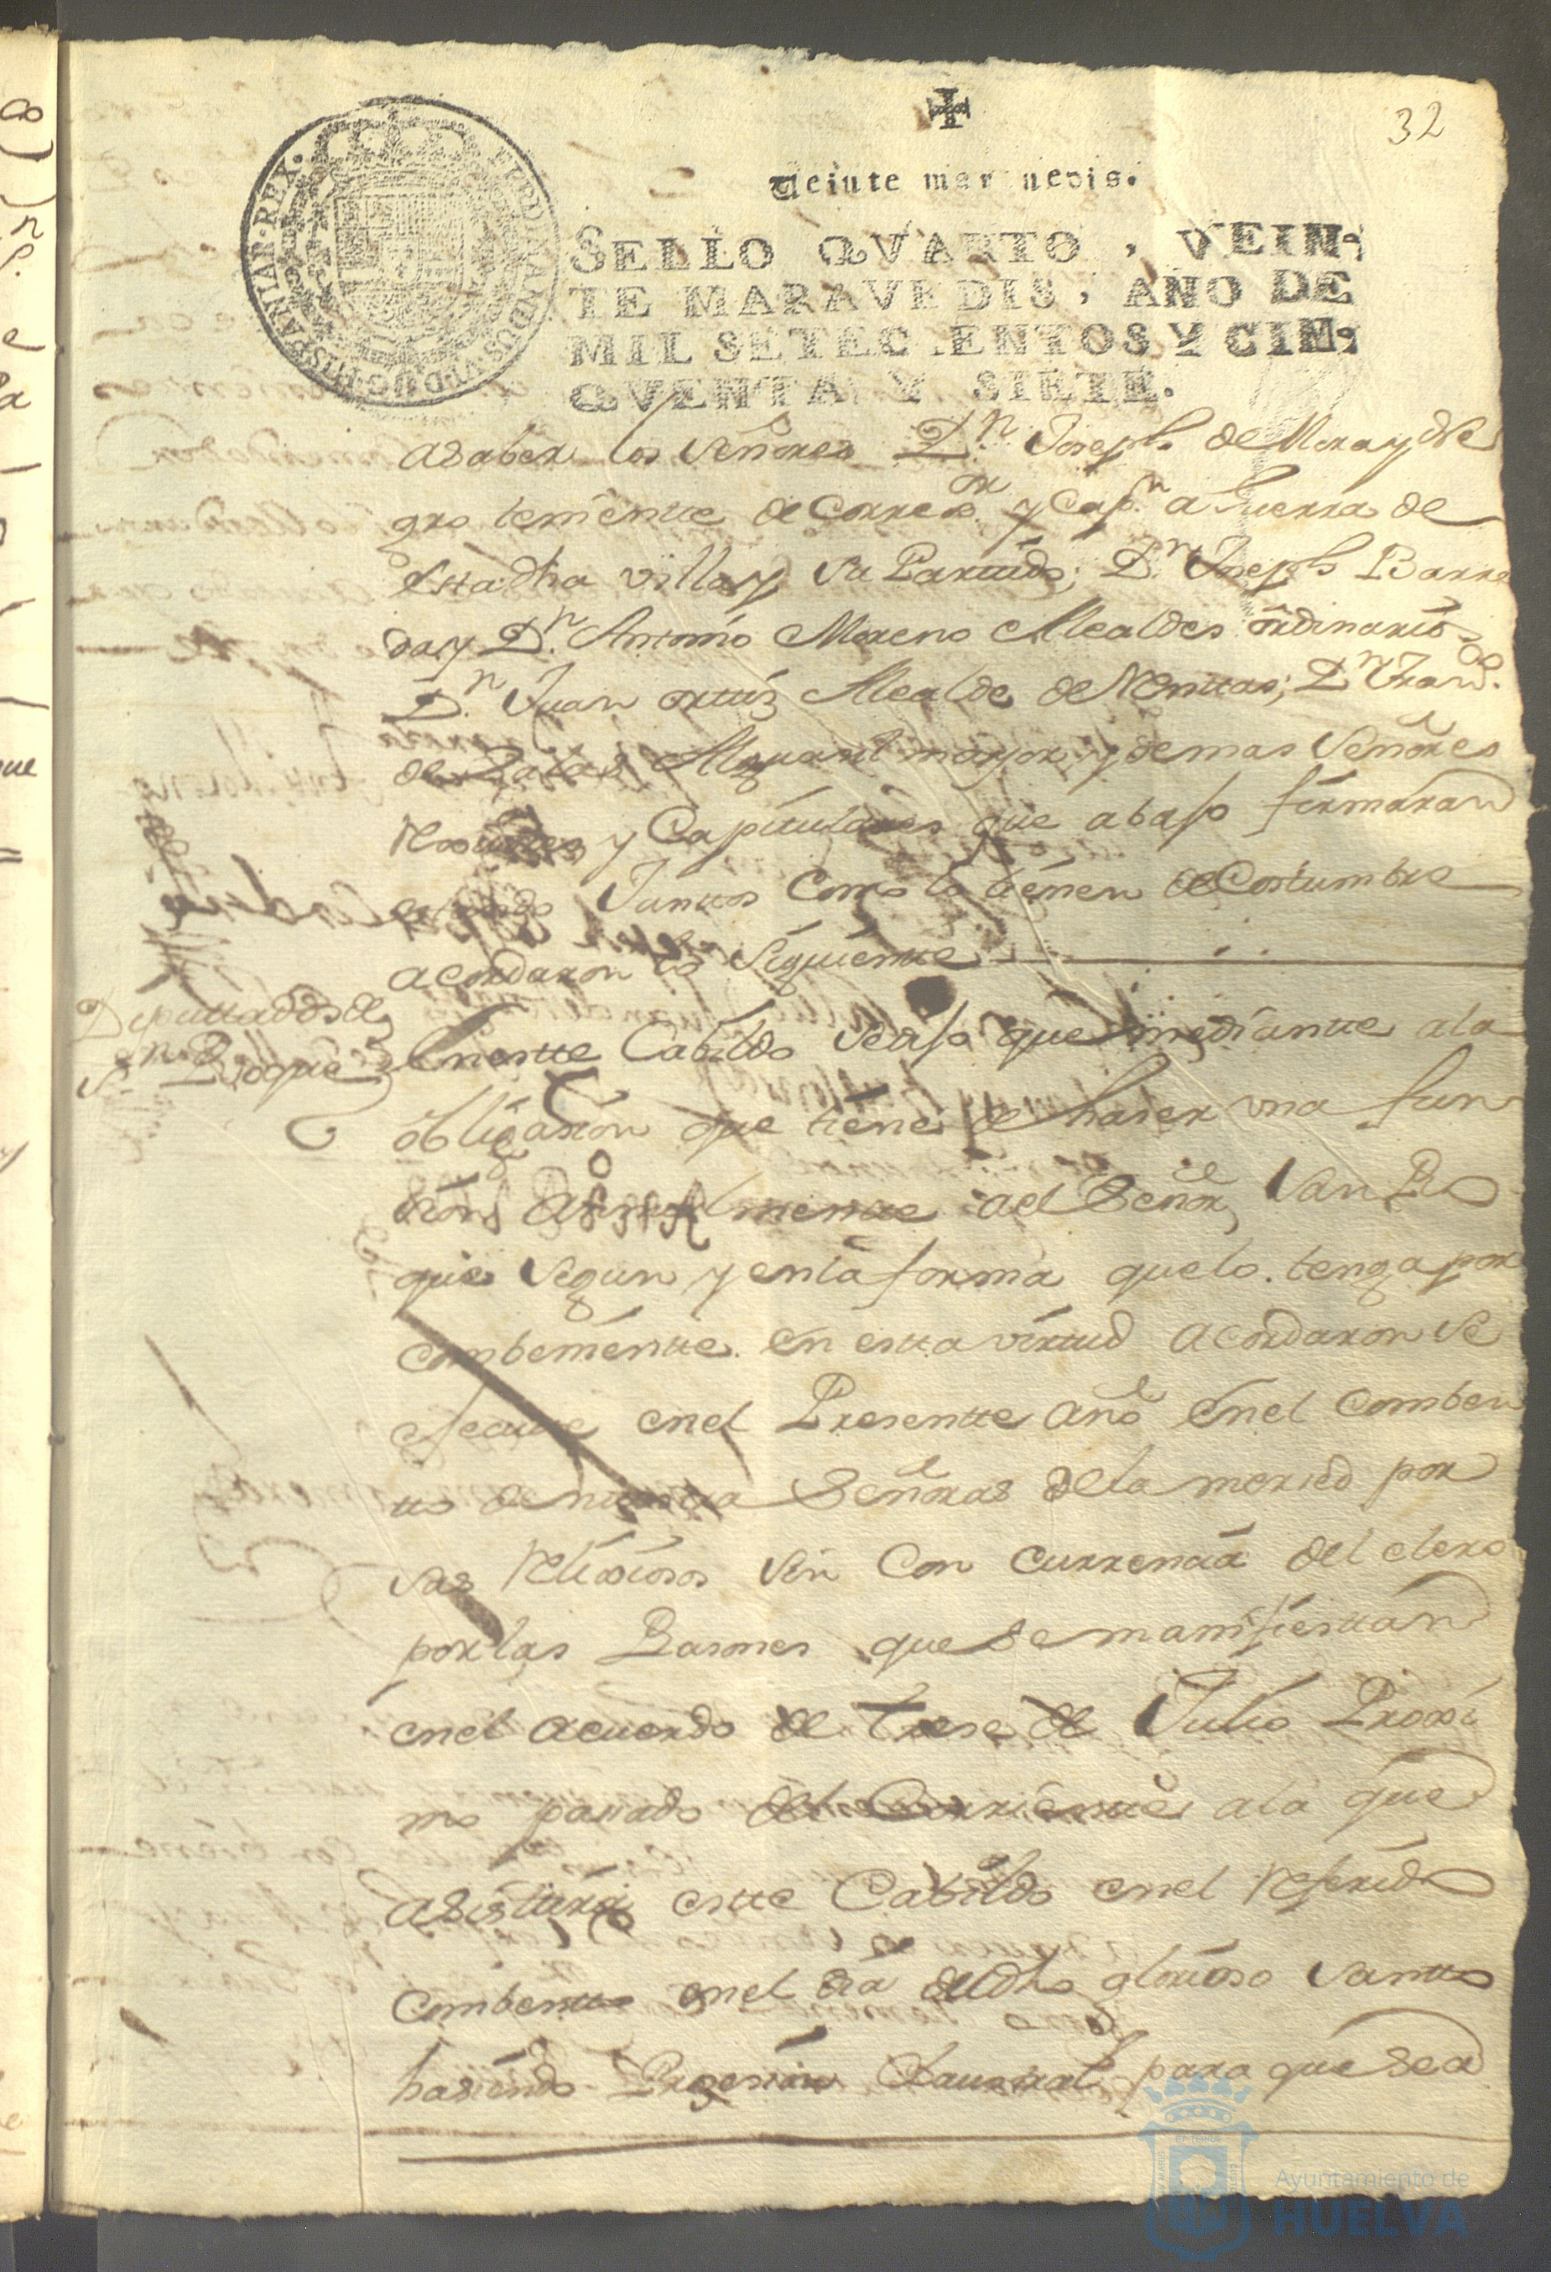 32
Veinte maravedis.
SELLO QVARTO, VEIN-
TE MARAVEDIS, AÑO DE
MIL SETECIENTOS Y CIN-
QVENTA Y SIETE.
FERDINANDUS VI D.G. HISPANIAR. REX.
asaber los señores Dn. Joseph de Mora y de
gro teniente de Correor. y Capn. a Guerra de
esta dha villa y su Partido; Dn. Joseph Barre
da y Dn. Antonio Moreno Alcaldes ordinarios
Dn. Juan ortiz Alcalde de Mentas; Dn. Franco.
de Alguasil mayor y demas señores
y Capitulares que abajo firmaran
estando Juntos como lo tienen de Costumbre
acordaron lo siguiente
Diputtados de
Sn. Roque
Enestte Cabildo sedijo que mediantte ala
obligasion que tiene de haser una fun
sion Anualmente al Señor San Ro
que segun y enla forma quelo tenga por
combenientte en estta virtud acordaron se
ejecute enel Presentte año Enel comben
tto de nuestra Señoras dela merced por
sus Relixiosos sin Con currencia del clero
por las Rasones que se manifiesttan
enel acuerdo de trese de Julio Proxi
mo passado del Corrientte ala que
asistira estte Cabildo enel Referido
combentto enel dia deldho glorioso santto
hasiendo Prosesion Claustral para que sea
Ayuntamiento de
HUELVA